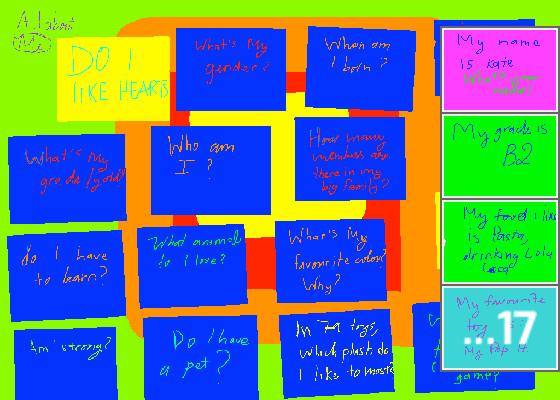 All about
Me
DO I
LIKE HEARTS
What's My
gender?
When am
I born?
My name
is kate
What's your
name?
What's My
grade (year)?
Who am
I?
How many
members are
there in my
big family?
My grade is
B2
do I have
to learn?
What animal
do I love?
What's My
favourite color?
Why?
My food I like
is Pasta,
drinking
Coca
Am' strong?
Do I have
a pet?
In 79 toys,
Which plush do
I like to most
game?
My favourite
toy is
My Pop It
...17